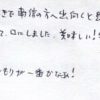 きで南信の方へ出向くと思
て、口にしました。美味しい!
もりが一番かなぁ!